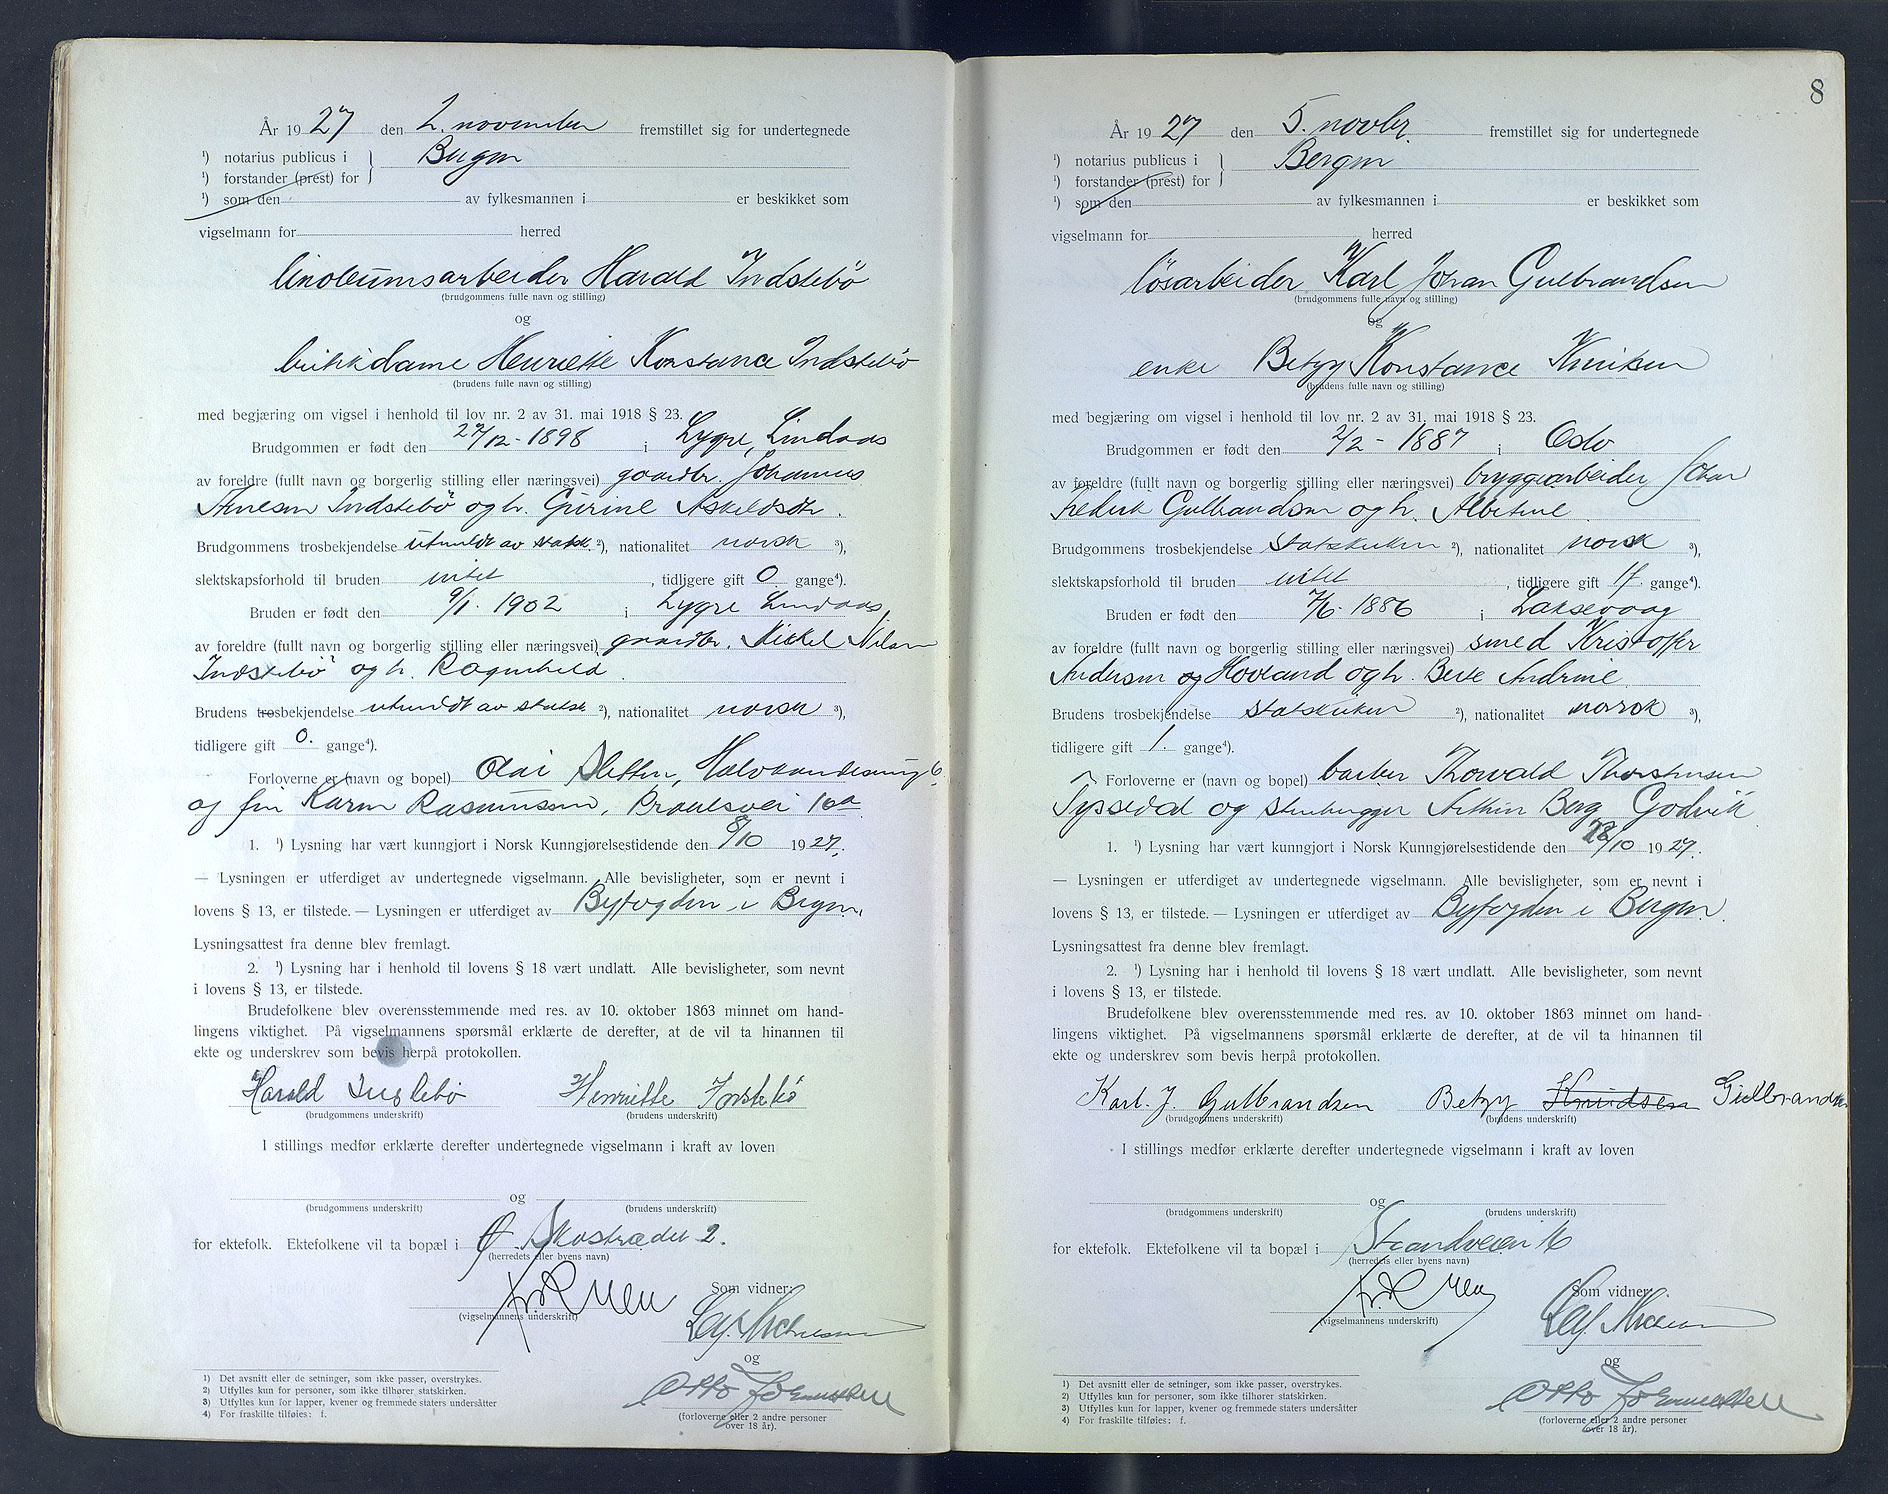 År 1927 den 2. november fremstillet sig for undertegnede
¹) notarius publicus i } Bergen
¹) forstander (prest) for
¹) som den av fylkesmannen i er beskikket som
vigselmann for herred
linoleumsarbeider Harald Indstebö
(brudgommens fulle navn og stilling)
og
butikkdame Henriette Konstance Indstebö
(brudens fulle navn og stilling)
med begjæring om vigsel i henhold til lov nr. 2 av 31. mai 1918 § 23.
Brudgommen er født den 27/12-1898 i Lygre, Lindaas
av foreldre (fullt navn og borgerlig stilling eller næringsvei) gaardbr. Johannes
Arnesen Indstebö og h. Gurine Askeldsdtr.
Brudgommens trosbekjendelse utmeldt av statsk. ²), nationalitet norsk ³),
slektskapsforhold til bruden intet, tidligere gift 0 gange⁴).
Bruden er født den 9/1. 1902 i Lygre Lindaas,
av foreldre (fullt navn og borgerlig stilling eller næringsvei) gaardbr. Mikkel Nilsen
Indstebö og h. Ragnhild.
Brudens trosbekjendelse utmeldt av statsk ²), nationalitet norsk ³),
tidligere gift 0. gange⁴).
Forloverne er (navn og bopel) Olai Sletten, 6.
og frk Karen Rasmussen, 10a
1. ¹) Lysning har vært kunngjort i Norsk Kunngjørelsestidende den 8/10 1927.
— Lysningen er utferdiget av undertegnede vigselmann. Alle bevisligheter, som er nevnt i
lovens § 13, er tilstede. — Lysningen er utferdiget av Byfogden i Bergen.
Lysningsattest fra denne blev fremlagt.
2. ¹) Lysning har i henhold til lovens § 18 vært undlatt. Alle bevisligheter, som nevnt
i lovens § 13, er tilstede.
Brudefolkene blev overensstemmende med res. av 10. oktober 1863 minnet om hand-
lingens viktighet. På vigselmannens spørsmål erklærte de derefter, at de vil ta hinannen til
ekte og underskrev som bevis herpå protokollen.
Harald Indstebö Henriette Indstebö
(brudgommens underskrift) (brudens underskrift)
I stillings medfør erklærte derefter undertegnede vigselmann i kraft av loven
og
(brudgommens underskrift) (brudens underskrift)
for ektefolk. Ektefolkene vil ta bopæl i Ø. Skostrædet 2.
(herredets eller byens navn)
Som vidner:
(vigselmannens underskrift)
og
Otto Johannessen
(forloverne eller 2 andre personer
over 18 år).
1) Det avsnitt eller de setninger, som ikke passer, overstrykes.
2) Utfylles kun for personer, som ikke tilhører statskirken.
3) Utfylles kun for lapper, kvener og fremmede staters undersåtter
4) For fraskilte tilføies: f.
8
År 1927 den 5. novbr. fremstillet sig for undertegnede
¹) notarius publicus i } Bergen
¹) forstander (prest) for
¹) som den av fylkesmannen i er beskikket som
vigselmann for herred
løsarbeider Karl Johan Gulbrandsen
(brudgommens fulle navn og stilling)
og
enke Betzy Konstance Knudsen
(brudens fulle navn og stilling)
med begjæring om vigsel i henhold til lov nr. 2 av 31. mai 1918 § 23.
Brudgommen er født den 2/2 - 1887 i Oslo
av foreldre (fullt navn og borgerlig stilling eller næringsvei) bryggearbeider Johan
Fredrik Gulbrandsen og h. Albertine
Brudgommens trosbekjendelse statskirken ²), nationalitet norsk ³),
slektskapsforhold til bruden intet, tidligere gift 1f gange⁴).
Bruden er født den 7/6-1886 i Laksevaag
av foreldre (fullt navn og borgerlig stilling eller næringsvei) smed Kristoffer
Andersen Hovland og h. Berte Andrine.
Brudens trosbekjendelse statskirken ²), nationalitet norsk ³),
tidligere gift 1. gange⁴).
Forloverne er (navn og bopel) barber Thorvald Thorstensen
Tyssedal og stenhugger Arthur Berg, Godvik
1. ¹) Lysning har vært kunngjort i Norsk Kunngjørelsestidende den 28/10 1927.
— Lysningen er utferdiget av undertegnede vigselmann. Alle bevisligheter, som er nevnt i
lovens § 13, er tilstede. — Lysningen er utferdiget av Byfogden i Bergen.
Lysningsattest fra denne blev fremlagt.
2. ¹) Lysning har i henhold til lovens § 18 vært undlatt. Alle bevisligheter, som nevnt
i lovens § 13, er tilstede.
Brudefolkene blev overensstemmende med res. av 10. oktober 1863 minnet om hand-
lingens viktighet. På vigselmannens spørsmål erklærte de derefter, at de vil ta hinannen til
ekte og underskrev som bevis herpå protokollen.
Karl. J. Gulbrandsen Betzy Knudsen Gulbrandsen
(brudgommens underskrift) (brudens underskrift)
I stillings medfør erklærte derefter undertegnede vigselmann i kraft av loven
og
(brudgommens underskrift) (brudens underskrift)
for ektefolk. Ektefolkene vil ta bopæl i Strandveien 16
(herredets eller byens navn)
Som vidner:
(vigselmannens underskrift)
og
Otto Johannessen
(forloverne eller 2 andre personer
over 18 år).
1) Det avsnitt eller de setninger, som ikke passer, overstrykes.
2) Utfylles kun for personer, som ikke tilhører statskirken.
3) Utfylles kun for lapper, kvener og fremmede staters undersåtter
4) For fraskilte tilføies: f.